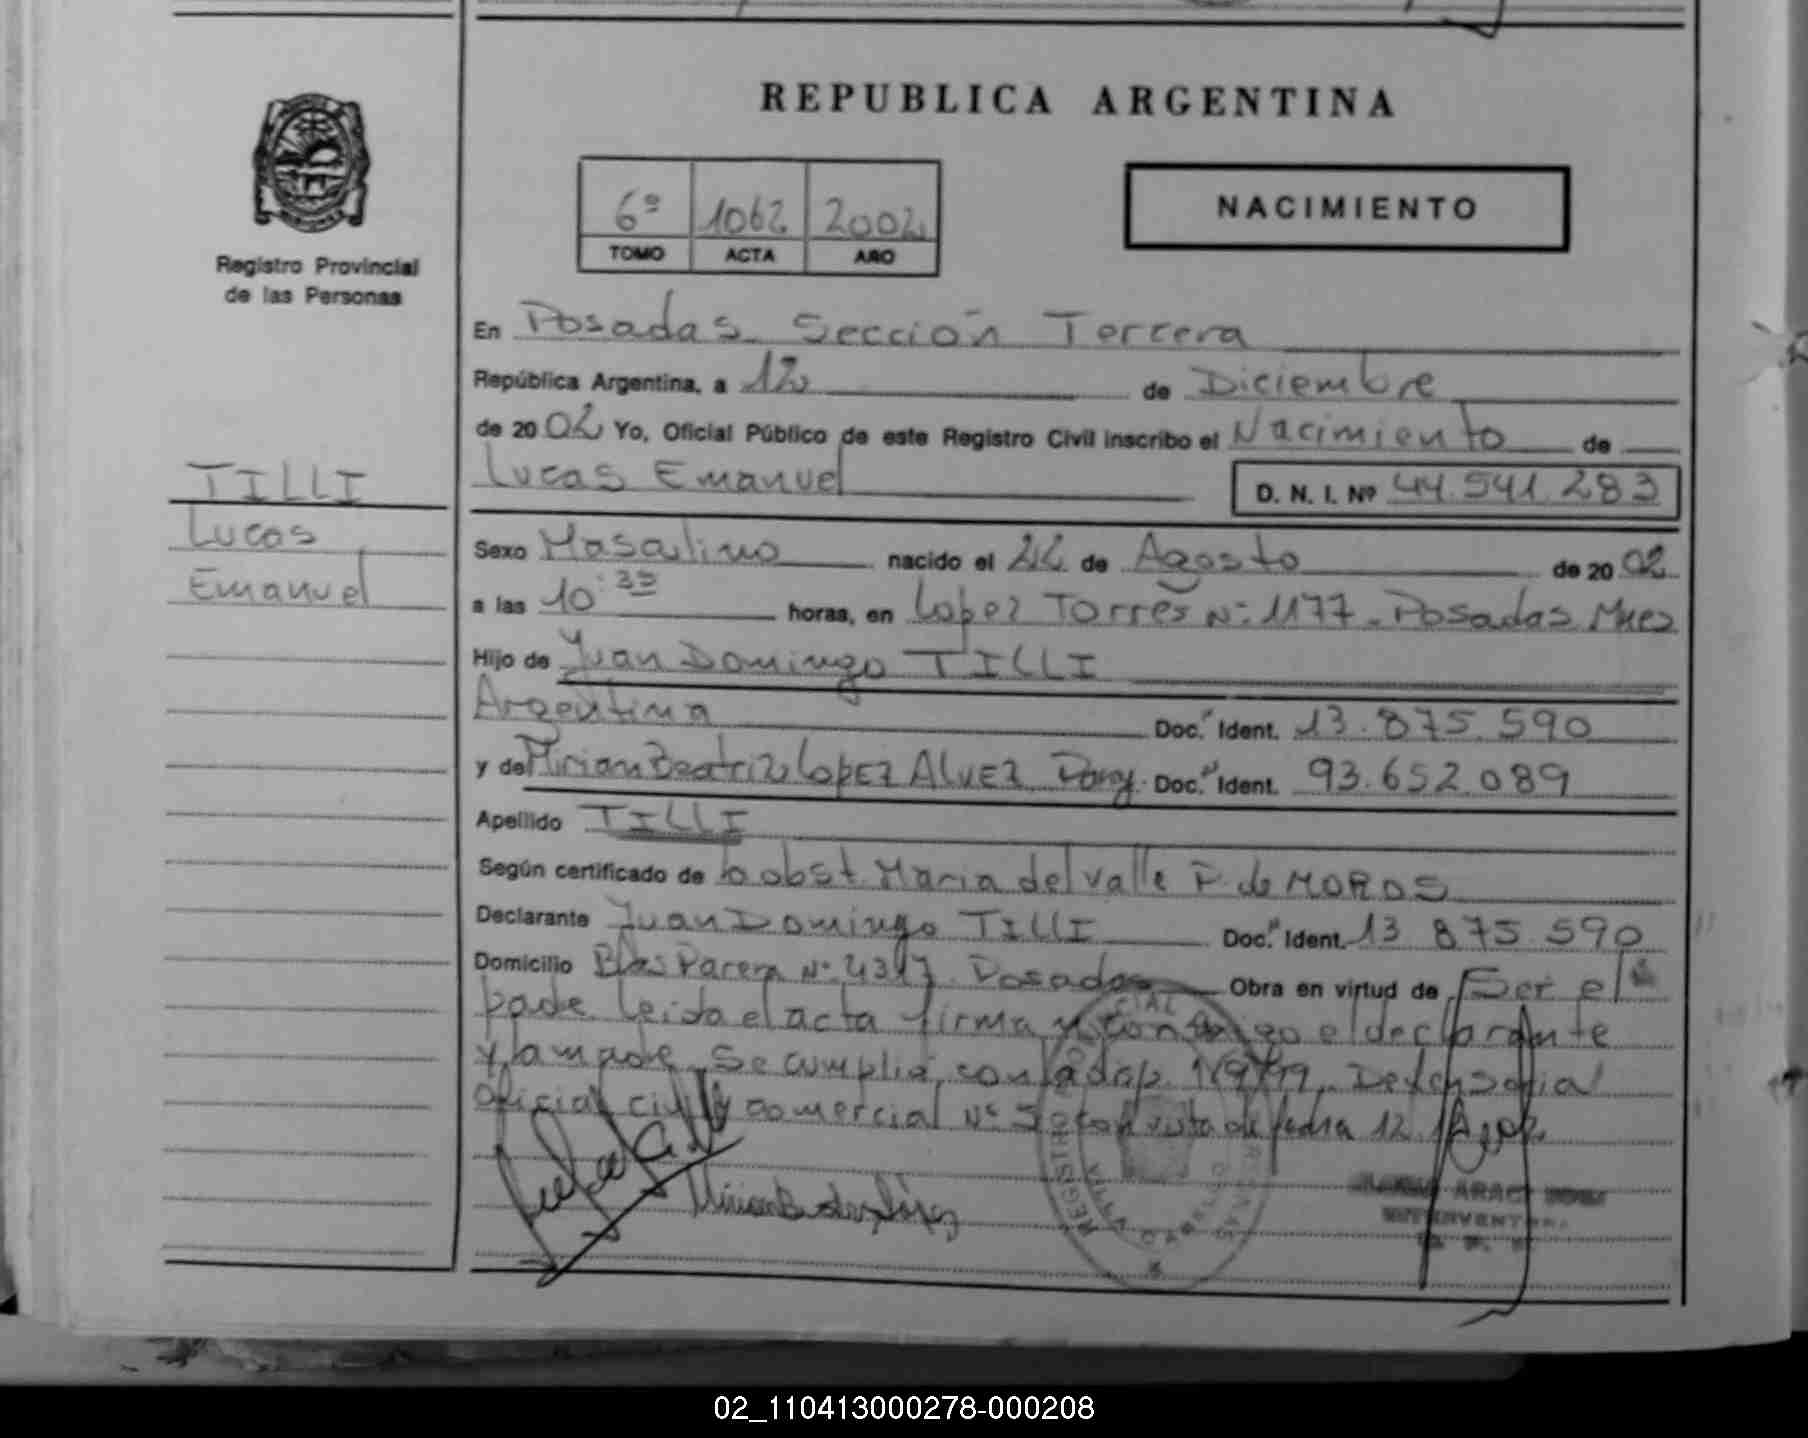 REPUBLICA ARGENTINA
Registro Provincial
de las Personas
6º 1062 2002
TOMO ACTA AÑO
NACIMIENTO
En Posadas Sección Tercera
República Argentina, a 12 de Diciembre
de 2002 Yo, Oficial Público de este Registro Civil inscribo el Nacimiento de
Lucas Emanuel D. N. I. Nº 44.541.283
TILLI
Lucas
Emanuel
Sexo Masculino nacido el 22 de Agosto de 2002
a las 10:35 horas, en Lopez Torres Nº 1177 - Posadas Mnes
Hijo de Juan Domingo TILLI
Argentina Doc. Ident. 13.875.590
y de Mirian Beatriz LOPEZ ALVEZ Parag. Doc. Ident. 93.652.089
Apellido TILLI
Según certificado de la obst. Maria del Valle F. de MOROS
Declarante Juan Domingo TILLI Doc. Ident. 13 875.590
Domicilio Blas Parera Nº 4317 Posadas Obra en virtud de Ser el
padre leida el acta firma conmigo el declarante
y la madre. Se cumplió con la disp. 1/9/99, Defensoria
Oficial civil y comercial Nº 5 con vista de fecha 12.
02_110413000278-000208